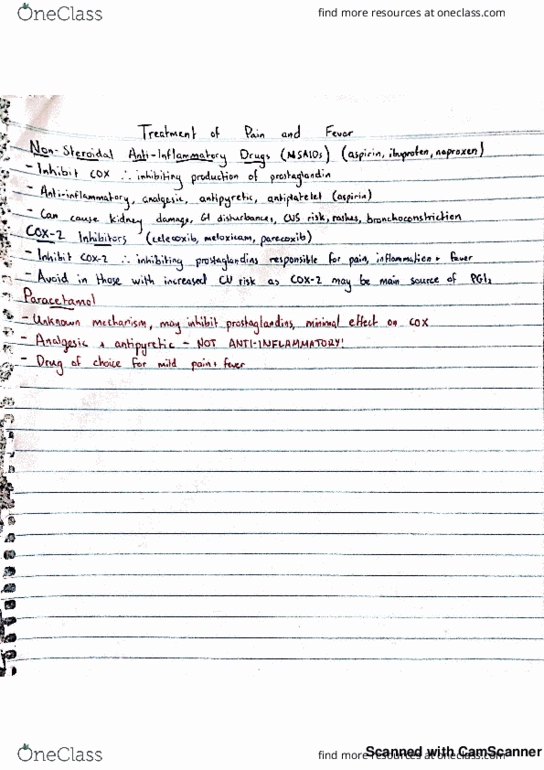 OneClass
find more resources at oneclass.com
Treatment of Pain and Fever
Non-Steroidal Anti-Inflammatory Drugs (NSAIDs) (aspirin, ibuprofen, naproxen)
- Inhibit COX ∴ inhibiting production of prostaglandin
- Anti-inflammatory, analgesic, antipyretic, antiplatelet (aspirin)
- Can cause kidney damage, GI disturbances, CVS risk, rashes, bronchoconstriction
COX-2 Inhibitors (celecoxib, meloxicam, parecoxib)
- Inhibit COX-2 ∴ inhibiting prostaglandins responsible for pain, inflammation + fever
- Avoid in those with increased CV risk as COX-2 may be main source of PGI₂
Paracetamol
- Unknown mechanism, may inhibit prostaglandins, minimal effect on COX
- Analgesic + antipyretic - NOT ANTI-INFLAMMATORY!
- Drug of choice for mild pain + fever
OneClass
find more resources at oneclass.com
Scanned with CamScanner